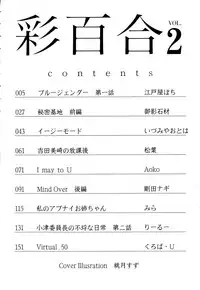 彩百合 VOL.2
contents
005 ブルージェンダー 第一話 江戸屋ぽち
027 秘密基地 前編 御影石材
043 イージーモード いづみやおとは
061 吉田美崎の放課後 松葉
071 I may to U Aoko
091 Mind Over 後編 剛田ナギ
115 私のアブナイお姉ちゃん みら
131 小津委員長の不埒な日常 第二話 りーるー
151 Virtual 50 くろば・U
Cover Illusration 桃月すず